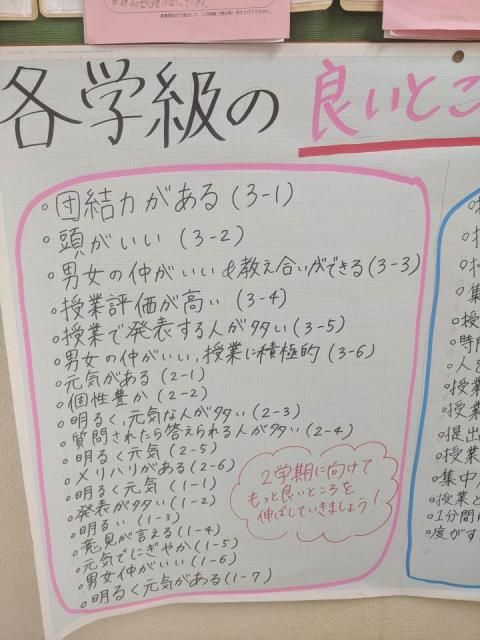 各学級の良いところ
○団結力がある(3-1)
○頭がいい(3-2)
○男女の仲がいい&教え合いができる(3-3)
○授業評価が高い(3-4)
○授業で発表する人が多い(3-5)
○男女の仲がいい,授業に積極的(3-6)
○元気がある(2-1)
○個性豊か(2-2)
○明るく,元気な人が多い(2-3)
○質問されたら答えられる人が多い(2-4)
○明るく元気(2-5)
○メリハリがある(2-6)
○明るく元気(1-1)
○発表が多い(1-2)
○明るい(1-3)
○意見が言える(1-4)
○元気でにぎやか(1-5)
○男女仲がいい(1-6)
○明るく元気がある(1-7)
2学期に向けて
もっと良いところを
伸ばしていきましょう!
○集
○授
○時間
○人を
○授業
○授業
○提出
○授業
○集中
○授業と
○1分間
○度がす